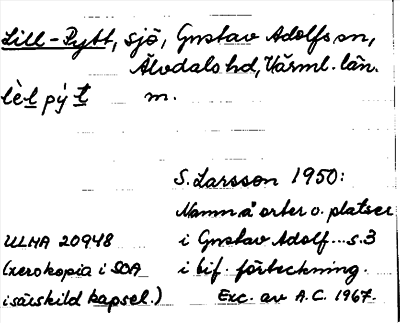 Lill-Pytt, sjö, Gustav Adolfs sn,
Älvdals hd, Värml. län.
lèl pýt m.
S. Larsson 1950:
Namn å orter o. platser
ULMA 20948 i Gustav Adolf...s.3
(xerokopia i SOA i bif. förteckning.
i särskild kapsel.) Exc. av A.C. 1967.